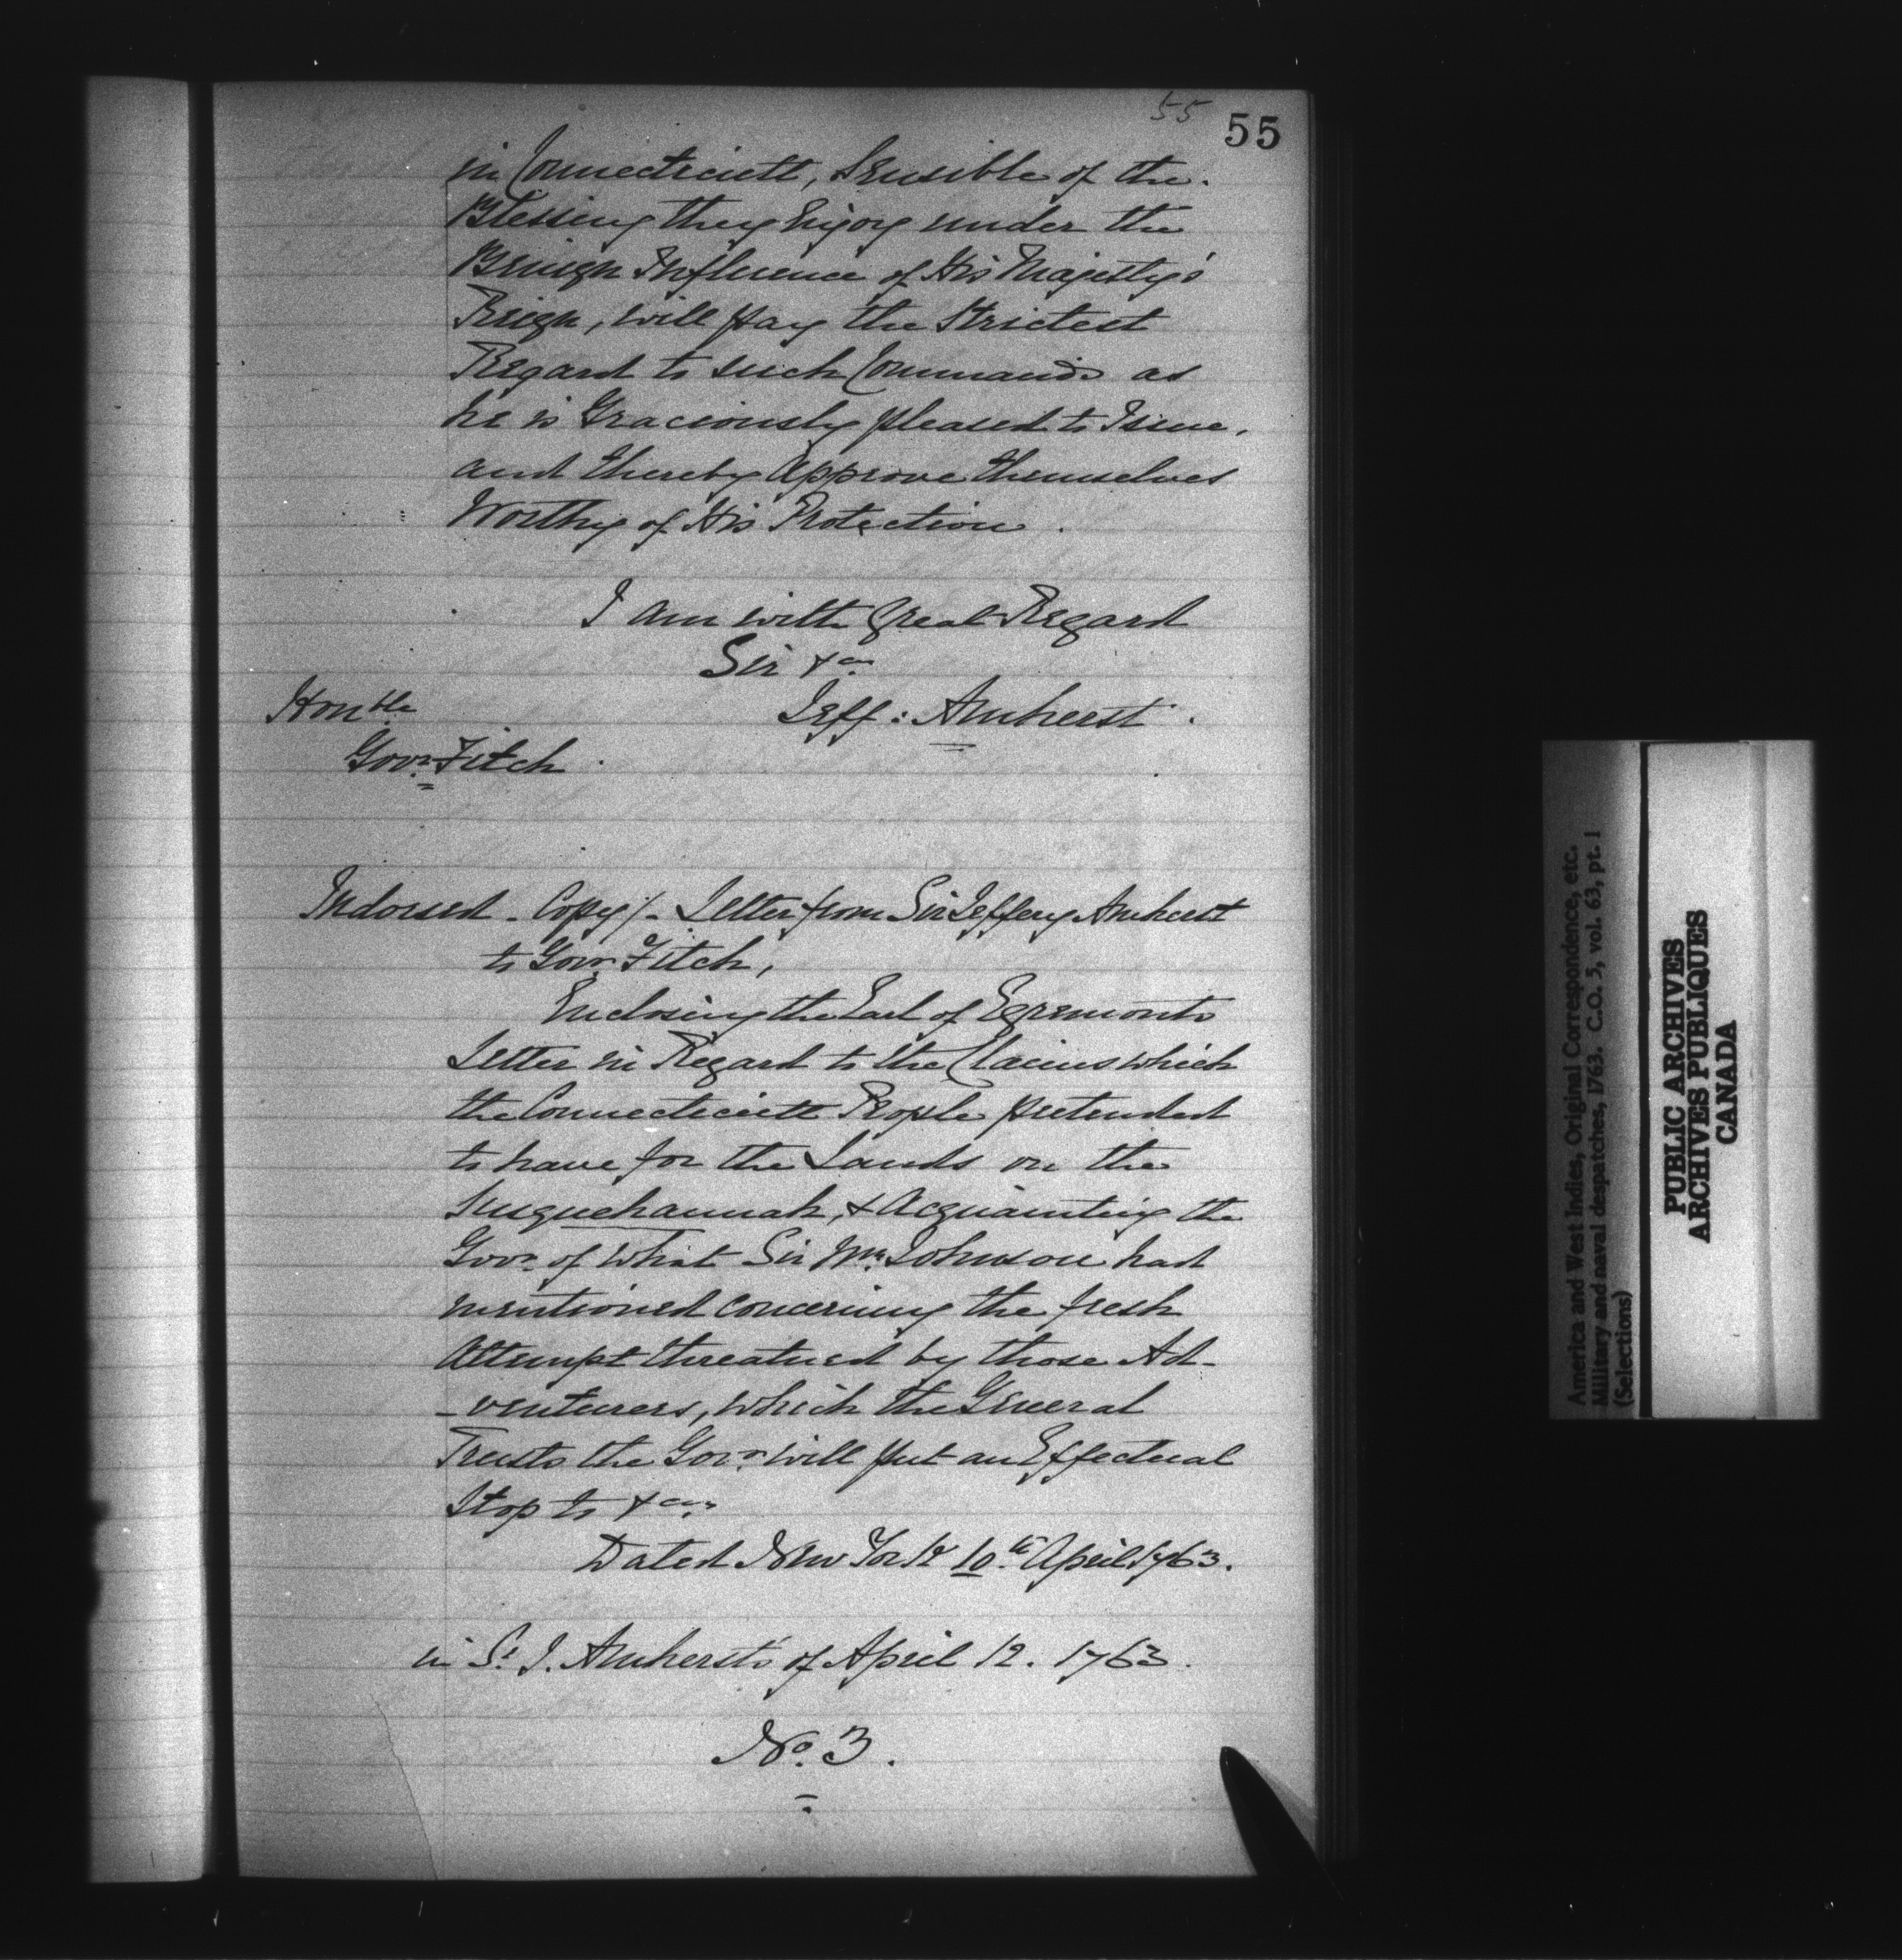 55
55
in Connecticutt, Sensible of the
Blessing they Enjoy under the
Benign Influence of His Majesty's
Reign, will pay the Strictest
Regard to such Commands as
he is Graciously pleased to Issue,
and thereby Approve themselves
Worthy of His Protection.
I am with great Regard
Sir &ca.
Jeff: Amherst.
Honble
Govr. Fitch.
Indorsed - Copy/- Letter from Sir Jeffery Amherst
to Govr. Fitch,
Enclosing the Earl of Egremonts
Letter in Regard to the Claims which
the Connecticutt People pretended
to have for the Lands on the
Susquehannah, & Acquainting the
Govr. of what Sir Wm. Johnson had
mentioned concerning the fresh
Attempt threatned by those Ad-
-venturers, which the General
Trusts the Govr. will put an Effectual
Stop to &ca.
Dated New York 10th. April 1763.
in Sr. J. Amherst's of April 12. 1763.
No. 3.
America and West Indies, Original Correspondence, etc.
Military and naval despatches, 1763. C.O. 5, vol. 63, pt. 1
(Selections)
PUBLIC ARCHIVES
ARCHIVES PUBLIQUES
CANADA